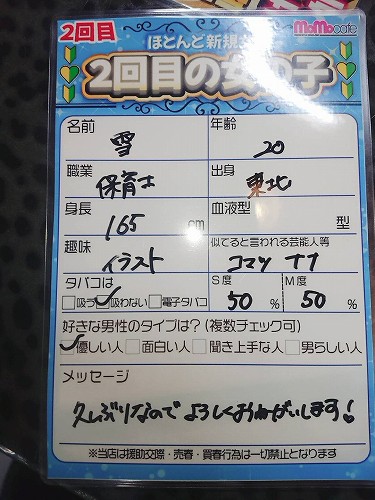 2回目
ほとんど新規
MoMocafe
2回目の女の子
名前 雪 年齢 20
職業 保育士 出身 東北
身長 165 cm 血液型 型
趣味 イラスト 似てると言われる芸能人等 コマツ ナナ
タバコは S度 M度
吸う 吸わない 電子タバコ 50 % 50 %
好きな男性のタイプは?(複数チェック可)
優しい人 面白い人 聞き上手な人 男らしい人
メッセージ
久しぶりなので よろしくおねがいします!
※当店は援助交際・売春・買春行為は一切禁止となります